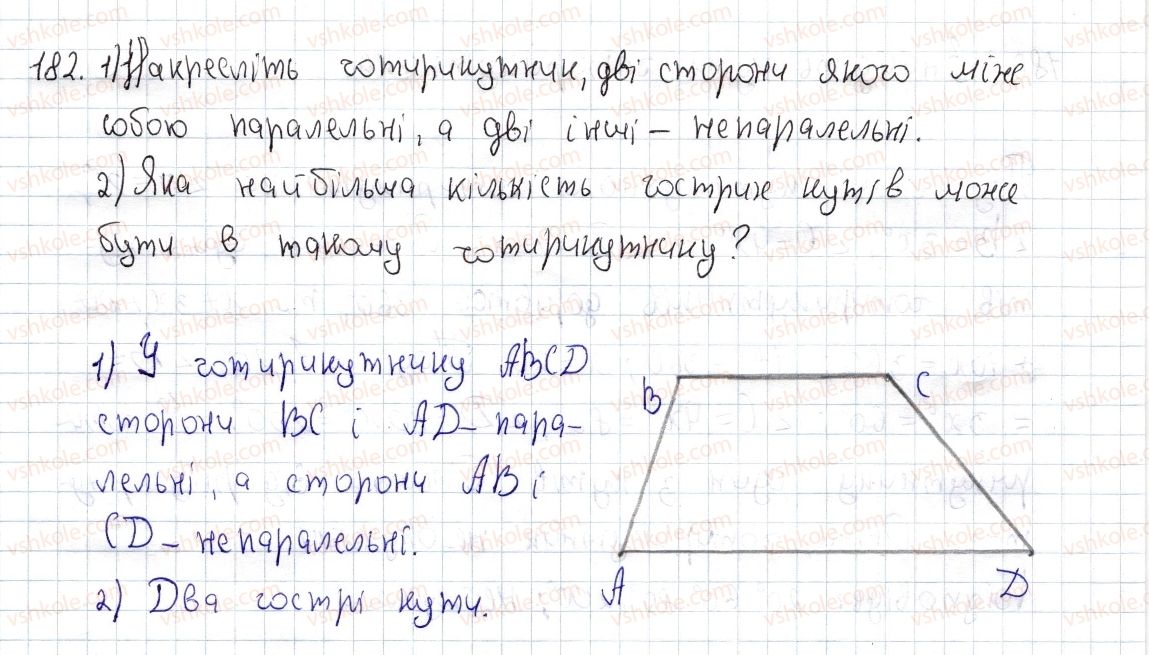 182. 1) Накресліть чотирикутник, дві сторони якого між
собою паралельні, а дві інші – непаралельні.
2) Яка найбільша кількість гострих кутів може
бути в такому чотирикутнику?
1) У чотирикутнику ABCD
сторони BC і AD – пара-
лельні, а сторони AB і
CD – непаралельні.
2) Два гострі кути.
B
C
A
D
vshkole.com